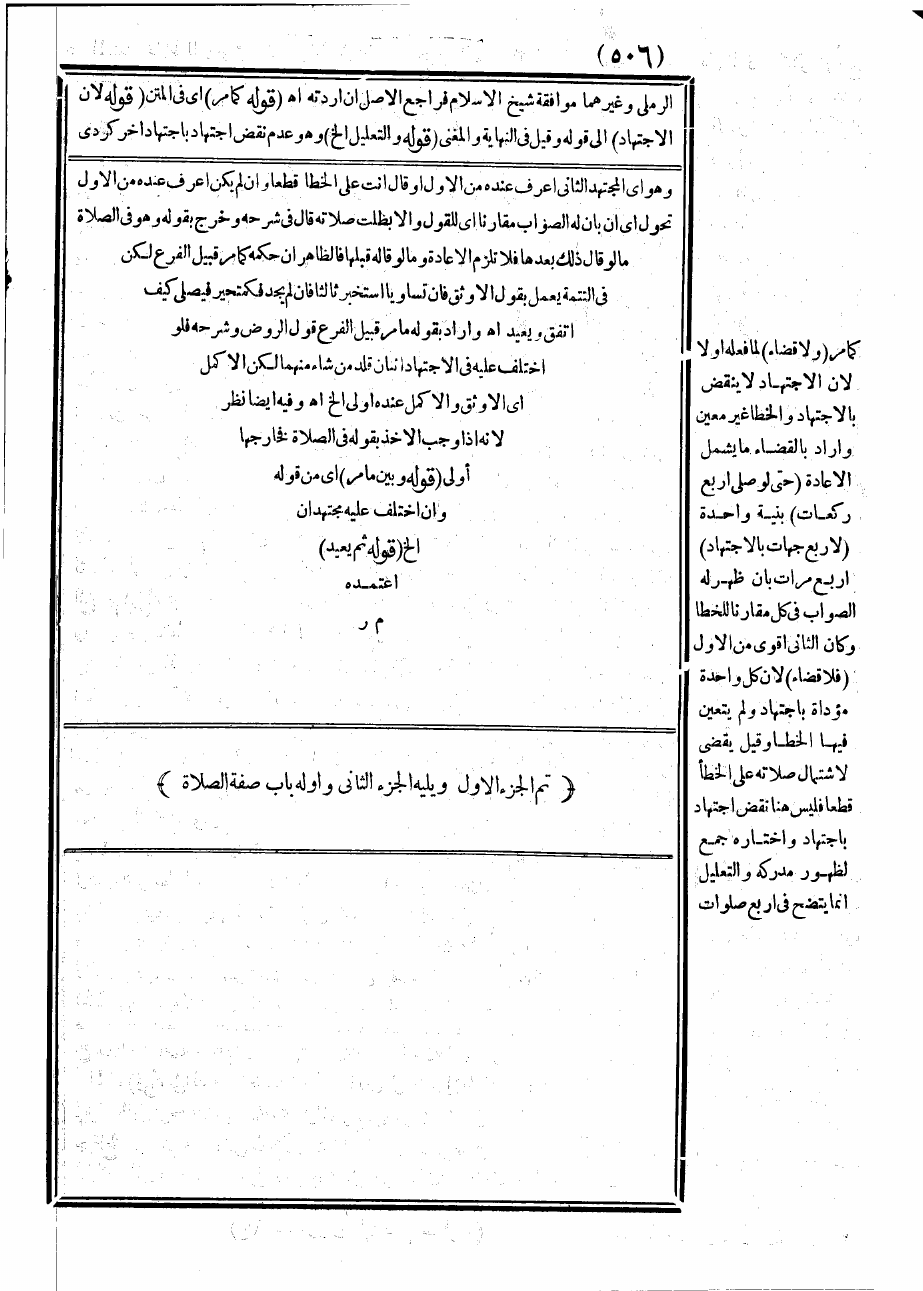 (٥٠٦)
الرملى وغيرهما موافقة شيخ الاسلام فراجع الاصل ان اردته اه (قوله كمامر) اى فى المتن (قوله لان
الاجتهاد) الى قوله وقيل فى النهاية والمغنى (قوله والتعليل الخ) وهو عدم نقض اجتهاد باجتهاد اخر كردى
وهو اى المجتهد الثانى اعرف عنده من الاول او قال انت على الخطا قطعا وان لم يكن اعرف عنده من الاول
تحول اى ان بان له الصواب مقارنا اى للقول والا بطلت صلاته قال فى شرحه وخرج بقوله وهو فى الصلاة
مالو قال ذلك بعدها فلا تلزم الاعادة ومالو قاله قبلها فالظاهر ان حكمه كمامر قبيل الفرع لكن
فى التتمة يعمل بقول الاوثق فان تساويا استخبر ثالثا فان لم يجد فكمتحير فيصلى كيف
اتفق ويعيد اه واراد بقوله مامر قبيل الفرع قول الروض وشرحه فلو
اختلف عليه فى الاجتهاد اثنان قلد من شاء منهما لكن الاكمل
اى الاوثق والاكمل عنده اولى الخ اه وفيه ايضا نظر
لانه اذا وجب الاخذ بقوله فى الصلاة فخارجها
أولى (قوله وبين مامر) اى من قوله
وان اختلف عليه مجتهدان
الخ (قوله ثم يعيد)
اعتمده
م ر
كمامر (ولا قضاء) لما فعله اولا
لان الاجتهاد لا ينقض
بالاجتهاد والخطا غير معين
واراد بالقضاء ما يشمل
الاعادة (حتى لو صلى اربع
ركعات) بنية واحدة
(لاربع جهات بالاجتهاد)
اربع مرات بان ظهر له
الصواب فى كل مقارنا للخطا
وكان الثانى اقوى من الاول
(فلا قضاء) لان كل واحدة
مؤداة باجتهاد ولم يتعين
فيها الخطا وقيل يقضى
لاشتمال صلاته على الخطأ
قطعا فليس هنا نقض اجتهاد
باجتهاد واختاره جمع
لظهور مدركه والتعليل
انما يتضح فى اربع صلوات
﴿ تم الجزء الاول ويليه الجزء الثانى واوله باب صفة الصلاة ﴾